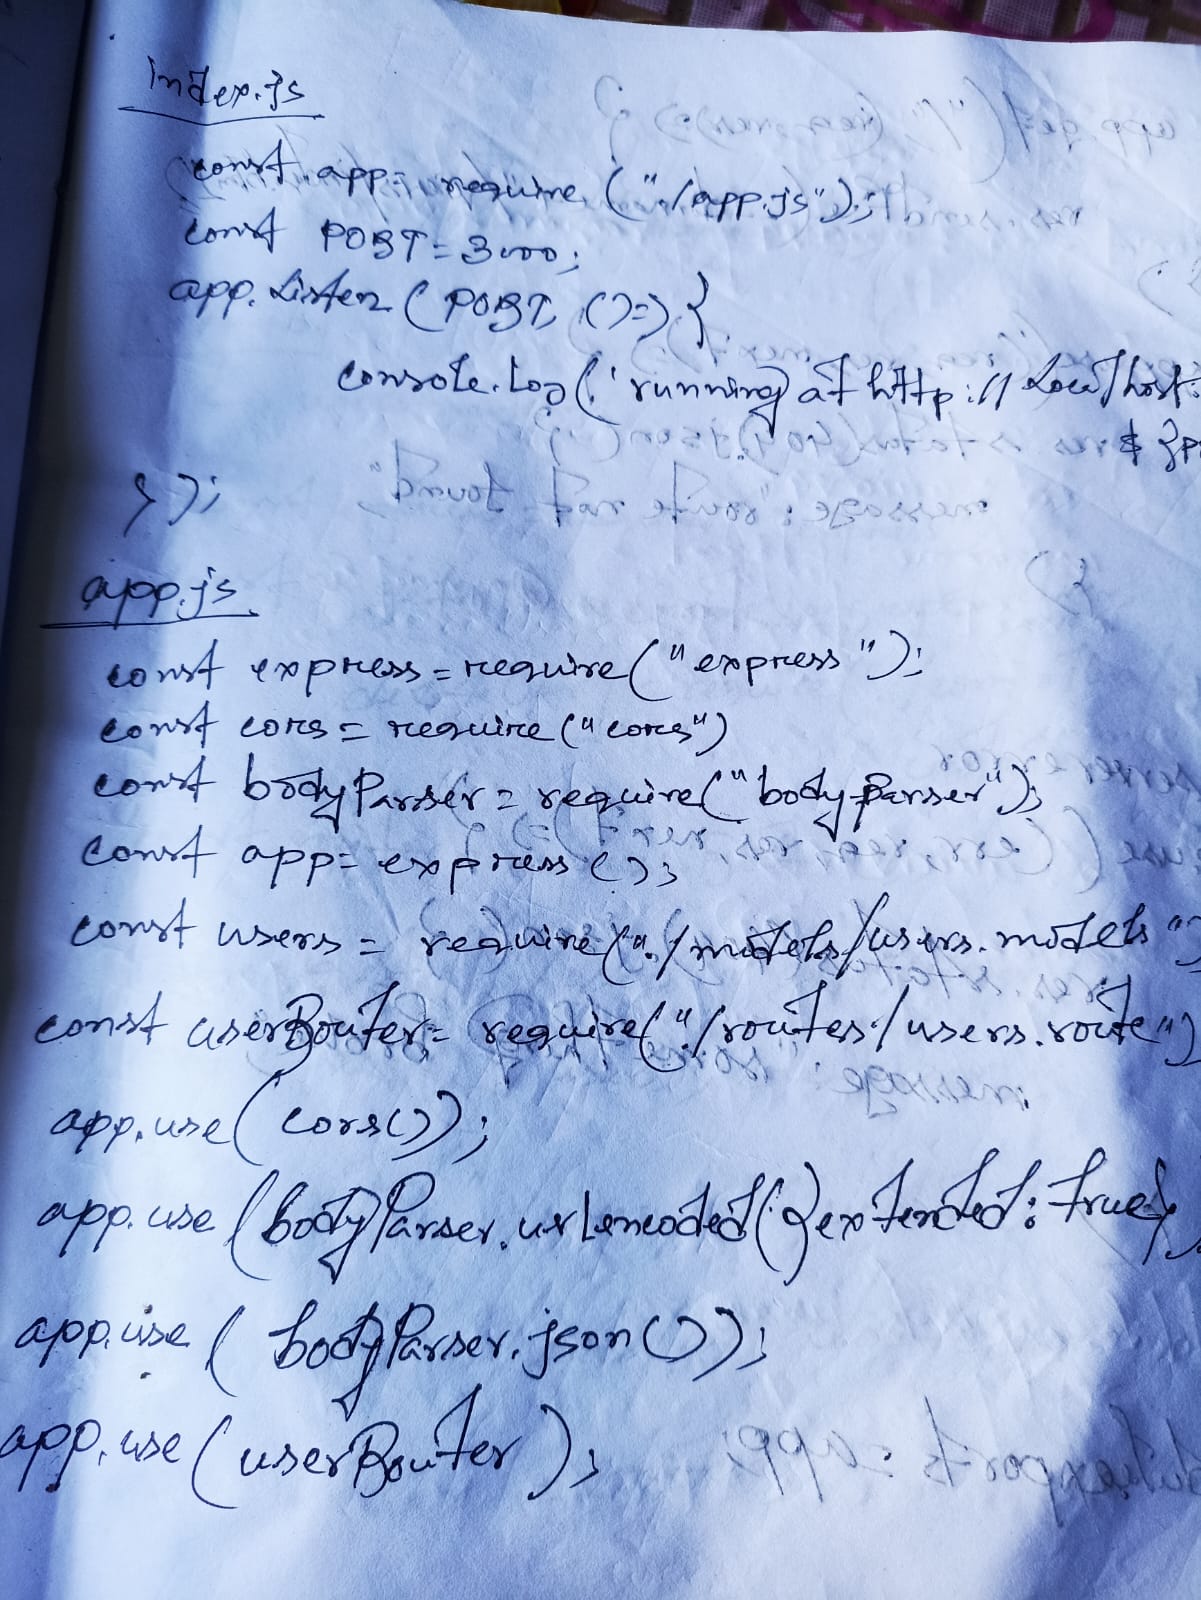 index.js
const app = require ("./app.js");
const PORT = 3000;
app.listen (PORT, () => {
console.log ('running at http://localhost:
${P
});
app.js
const express = require("express");
const cors = require("cors")
const bodyParser = require("body-parser");
const app = express();
const users = require("./models/users.models")
const userRouter = require("./routes/users.route")
app.use(cors());
app.use(bodyParser.urlencoded({extended: true}
app.use(bodyParser.json());
app.use(userRouter);